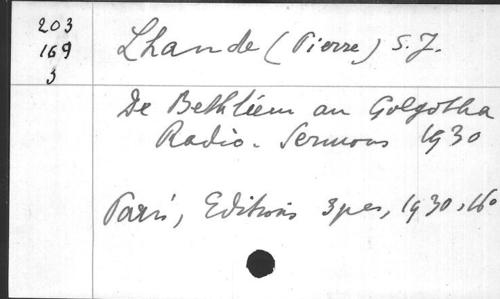 203
169
3
Lhande (Pierre) S.J.
De Bethléem au Golgotha
Radio-Sermons 1930
Paris, Editions Spes, 1930, 16°